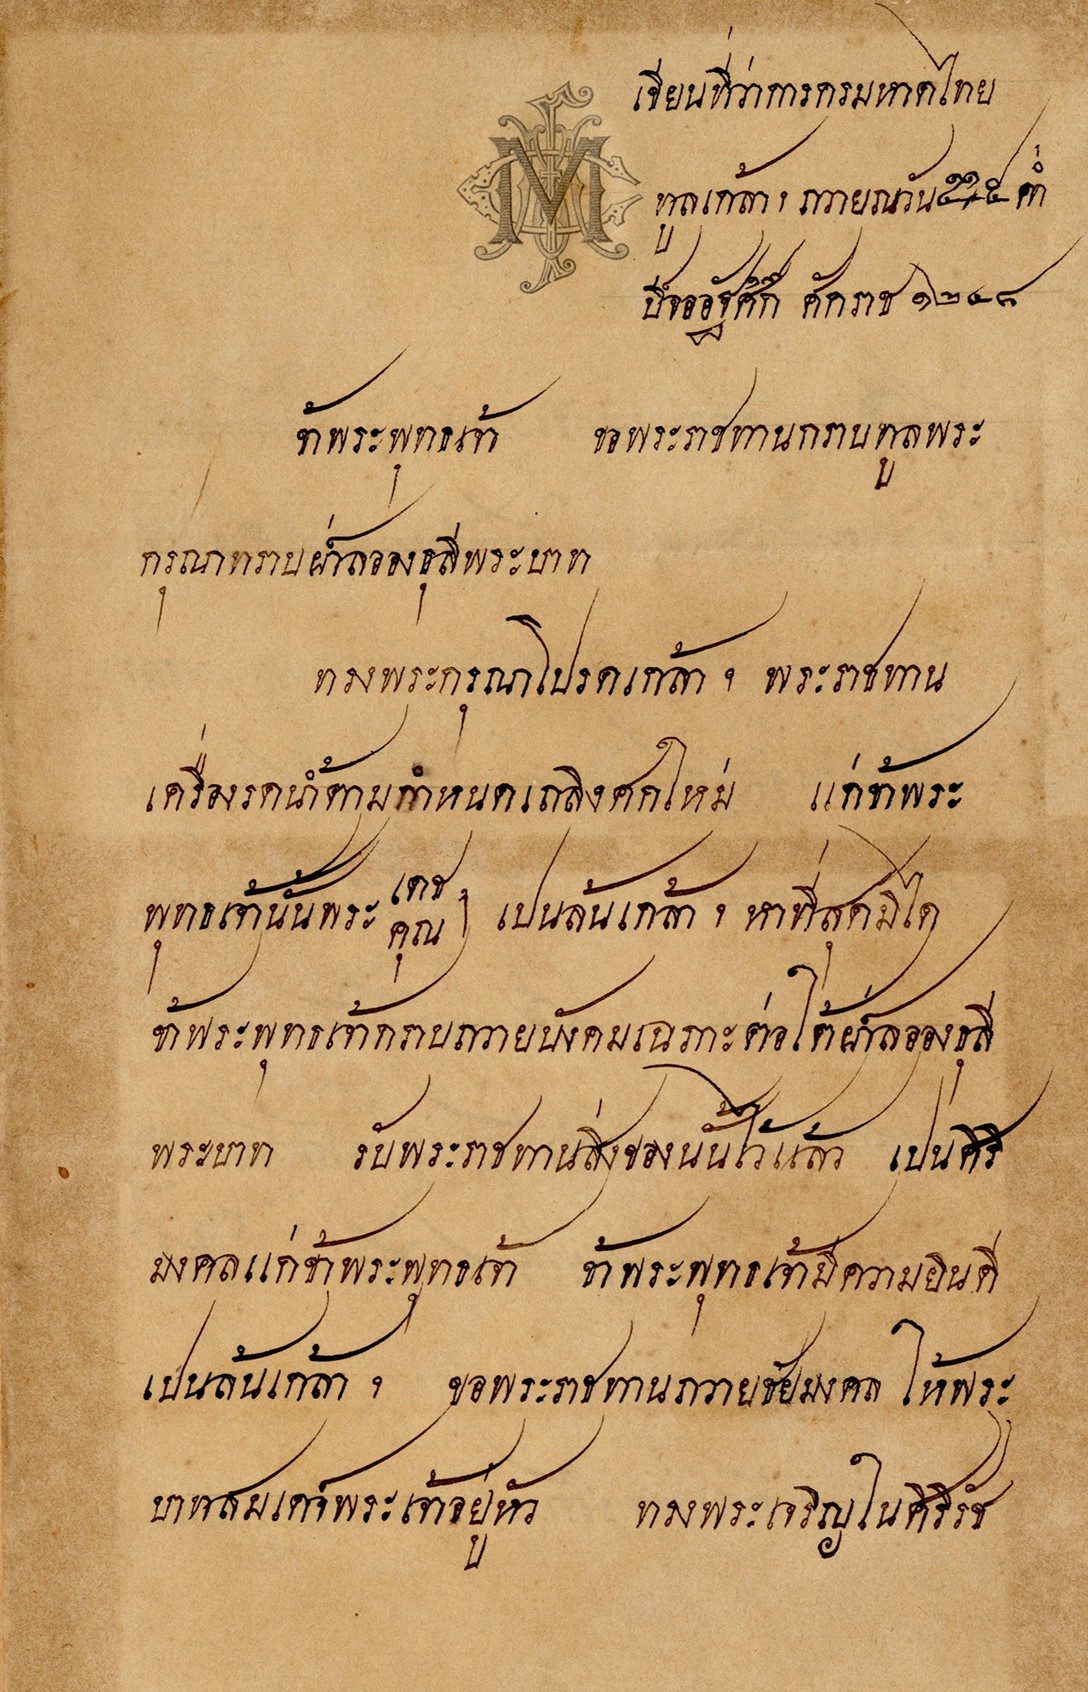 เขียนที่ว่าการกรมหาดไทย
ทูลเกล้าฯ ถวายณวัน ค่ำ
ปีจออัฐศก ศักราช ๑๒๔๘
ข้าพระพุทธเจ้า ขอพระราชทานกราบทูลพระ
กรุณาทราบฝ่าลอองธุลีพระบาท
ทรงพระกรุณาโปรดเกล้า ฯ พระราชทาน
เครื่องรดน้ำตามกำหนดเถลิงศกใหม่ แก่ข้าพระ
พุทธเจ้านั้นพระเดชคุณ เปนล้นเกล้า ฯ หาที่สุดมิได
ข้าพระพุทธเจ้ากราบถวายบังคมเฉภาะต่อใต้ฝ่าลอองธุลี
พระบาท รับพระราชทานสิ่งของนั้นไว้แล้ว เปนศิริ
มงคลแก่ข้าพระพุทธเจ้า ข้าพระพุทธเจ้ามีความยินดี
เปนล้นเกล้า ฯ ขอพระราชทานถวายชัยมงคล ให้พระ
บาทสมเดจ์พระเจ้าอยู่หัว ทรงพระเจริญในศิริรัช